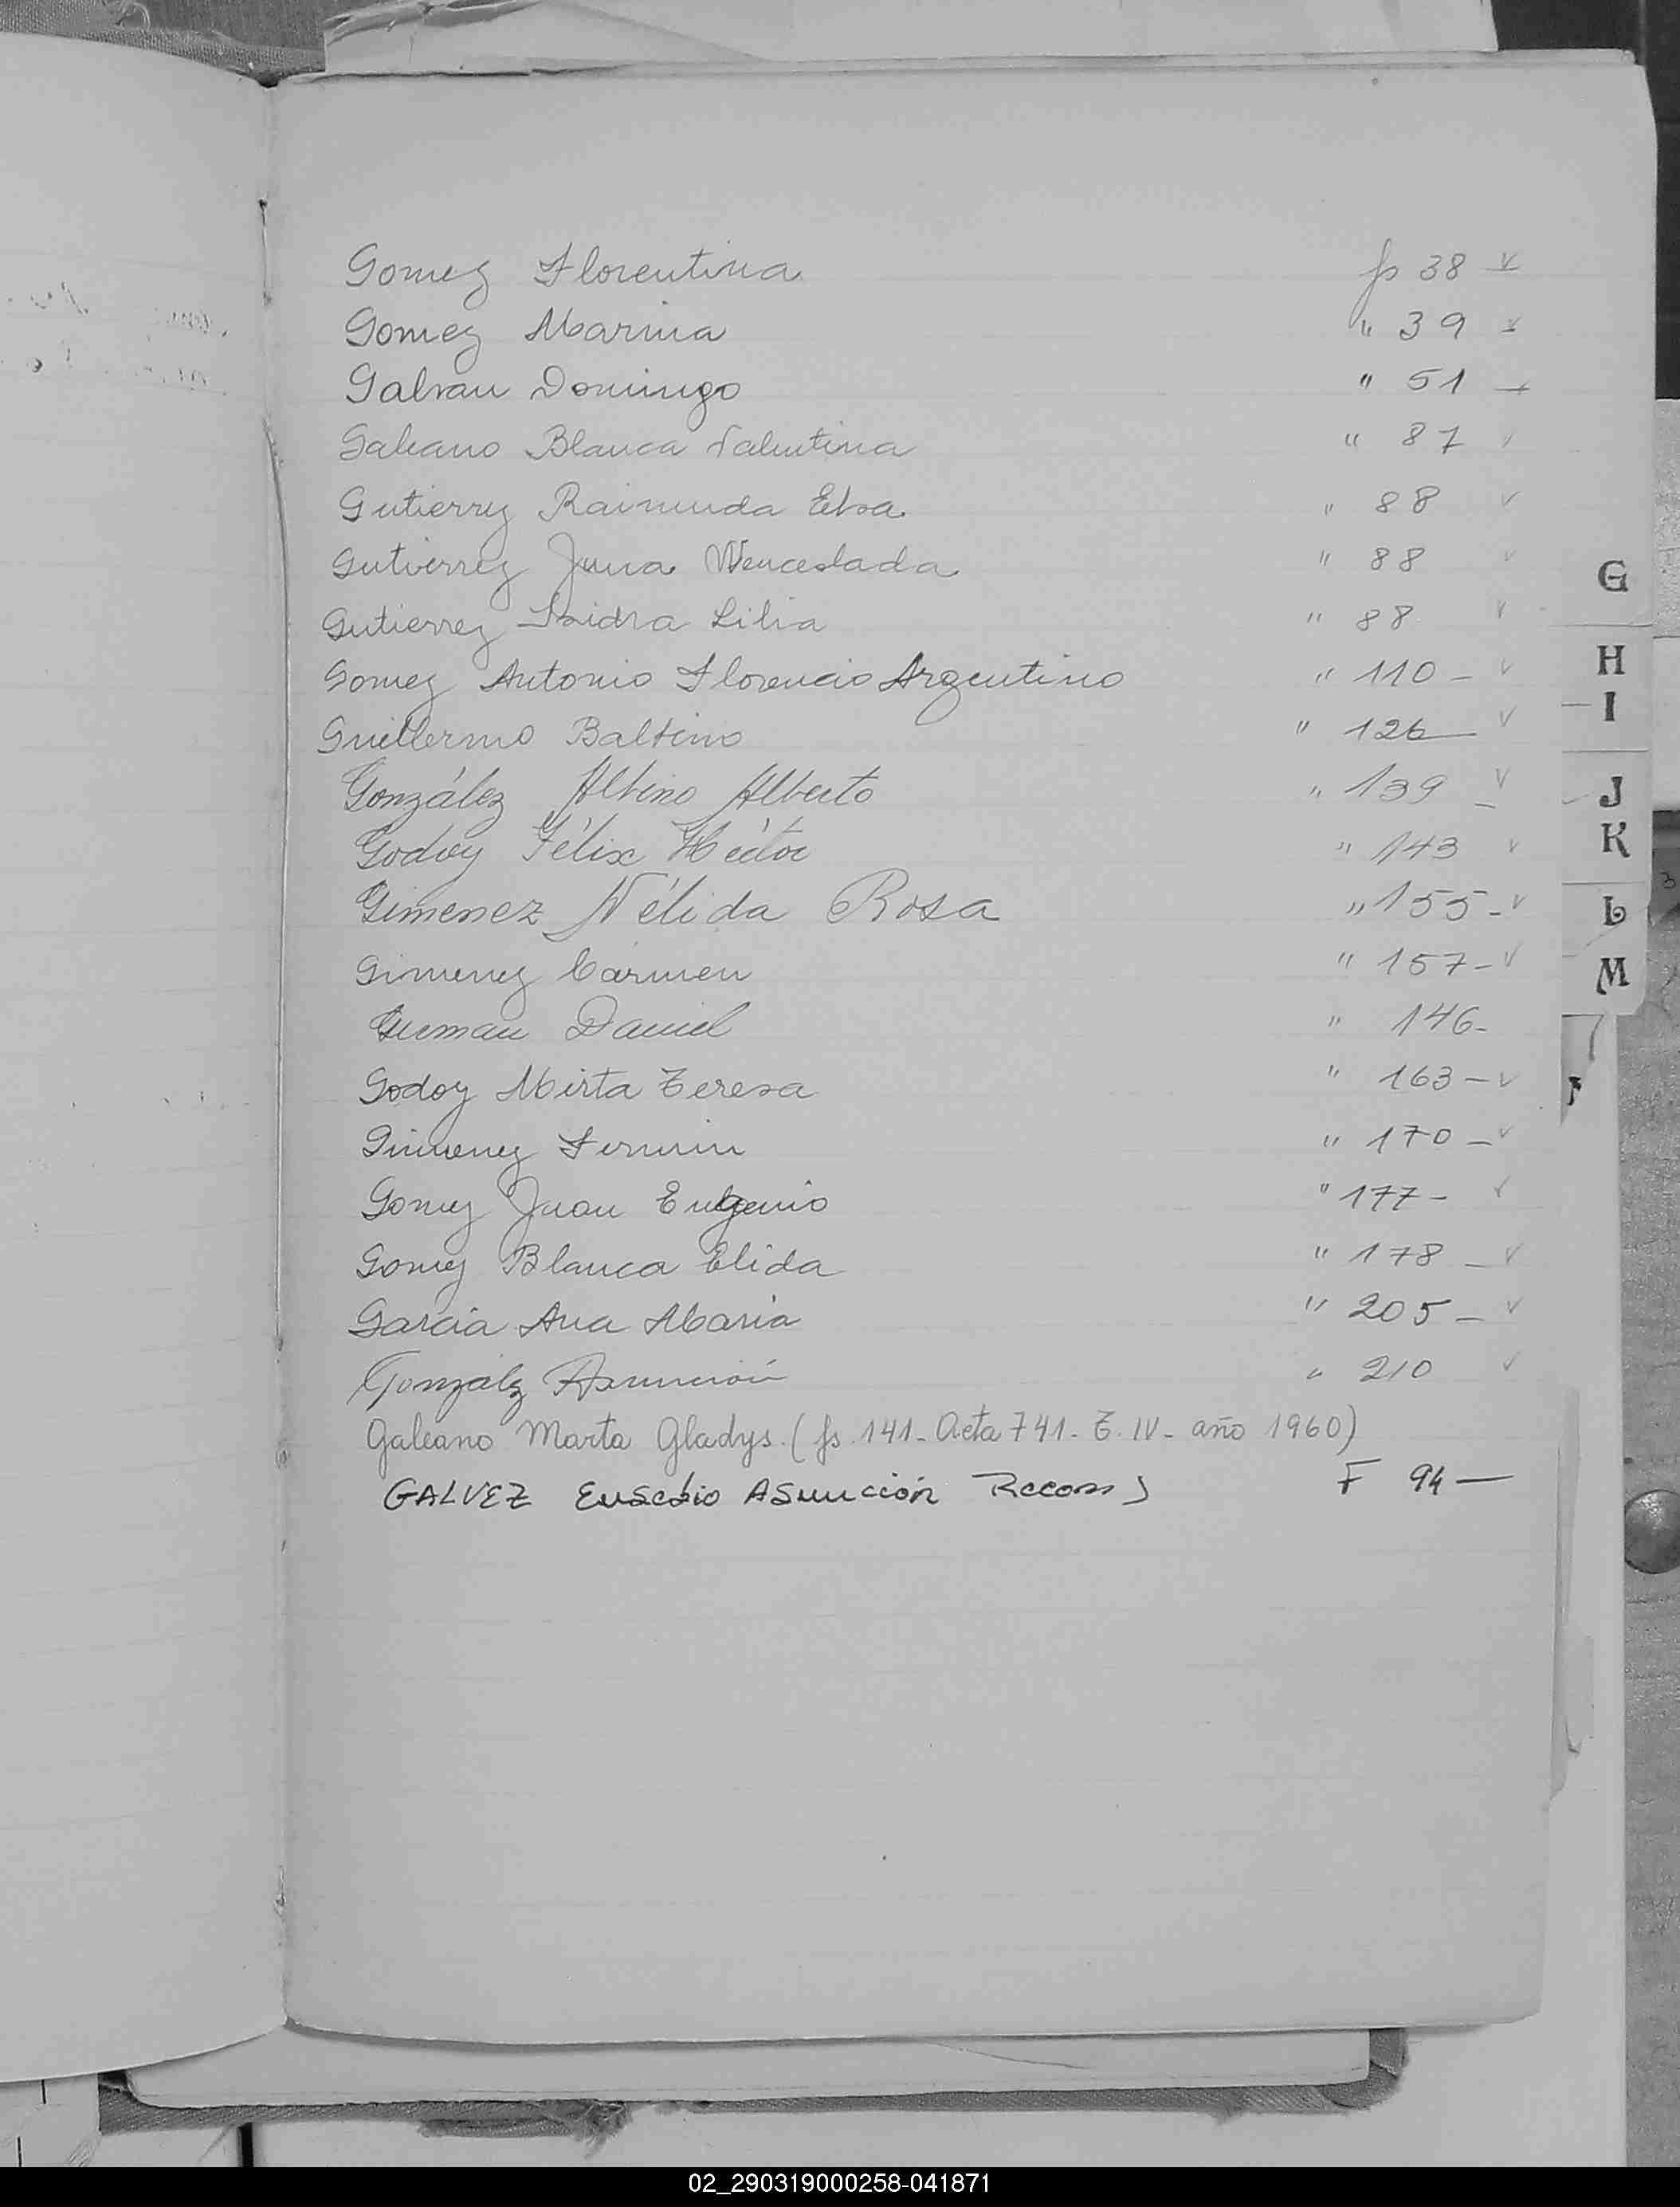 Gomez Florentina fs 38 v
Gomez Marina " 39 v
Galvan Domingo " 51
Galeano Blanca Valentina " 87
Gutierrez Raimunda Elsa " 88 v
Gutierrez Juna Wenceslada " 88 v
Gutierrez Isidra Lilia " 88 v
Gomez Antonio Florencio Argentino " 110 - v
Guillermo Balbino " 126 - v
González Albino Alberto " 139 - v
Godoy Félix Héctor " 143 v
Gimenez Nélida Rosa " 155 - v
Gimenez Carmen " 157 - v
Guzman Daniel " 146 -
Godoy Mirta Teresa " 163 - v
Gimenez Fermin " 170 - v
Gomez Juan Eugenio " 177 - v
Gomez Blanca Elida " 178 - v
Garcia Ana Maria " 205 - v
González Asunción " 210 v
Galeano Marta Gladys. (fs 141 - Acta 741 - T. IV - año 1960)
GALVEZ Eusebio Asunción F 94 —
G
H
I
J
K
L
M
02_290319000258-041871